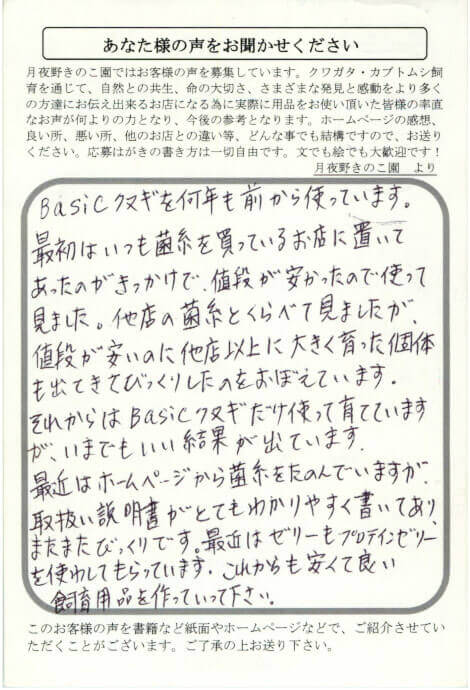 あなた様の声をお聞かせください
月夜野きのこ園ではお客様の声を募集しています。クワガタ・カブトムシ飼
育を通じて、自然との共生、命の大切さ、さまざまな発見と感動をより多く
の方達にお伝え出来るお店になる為に実際に用品をお使い頂いた皆様の率直
なお声が何よりの力となり、今後の参考となります。ホームページの感想、
良い所、悪い所、他のお店との違い等、どんな事でも結構ですので、お送り
ください。応募はがきの書き方は一切自由です。文でも絵でも大歓迎です！
月夜野きのこ園　より
Basicクヌギを何年も前から使っています。
最初はいつも菌糸を買っているお店に置いて
あったのがきっかけで、値段が安かったので使って
見ました。他店の菌糸とくらべて見ましたが、
値段が安いのに他店以上に大きく育った個体
も出てきてびっくりしたのをおぼえています。
それからはBasicクヌギだけ使って育てています
が、いまでもいい結果が出ています。
最近はホームページから菌糸をたのんでいますが、
取扱い説明書がとてもわかりやすく書いてあり、
またまたびっくりです。最近はゼリーもプロテインゼリー
を使わしてもらっています。これからも安くて良い
飼育用品を作っていって下さい。
このお客様の声を書籍など紙面やホームページなどで、ご紹介させてい
ただくことがございます。ご了承の上お送り下さい。